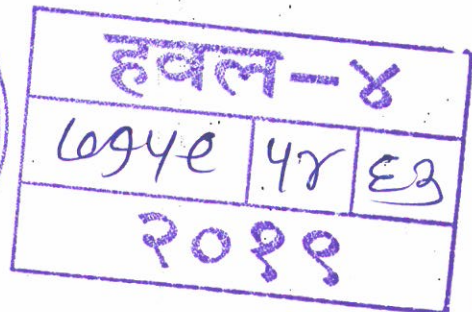 हवल-४
७१५९ ५४ ६३
२०१९